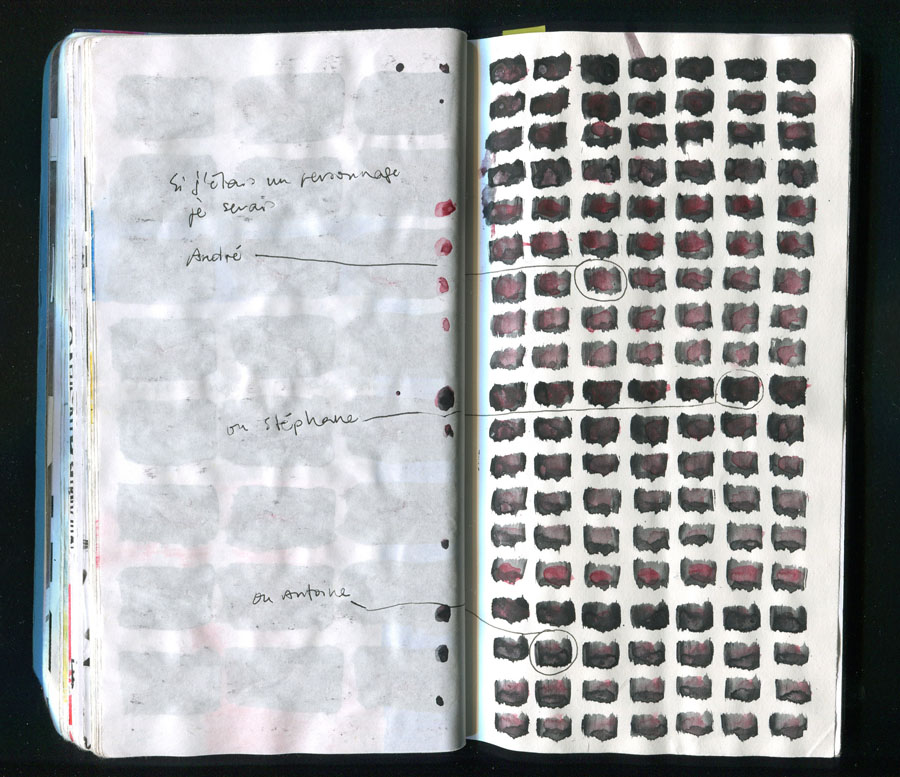 Si j'étais un personnage
je serais
André
ou Stéphane
ou Antoine